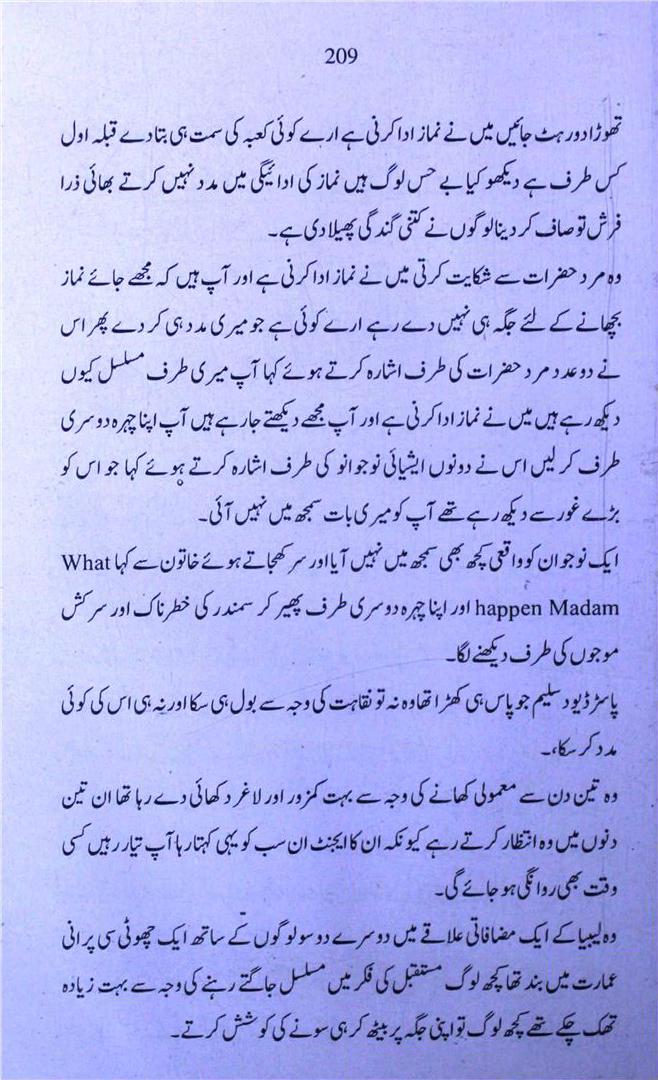 209
تھوڑا دور ہٹ جائیں میں نے نماز ادا کرنی ہے ارے کوئی کعبہ کی سمت ہی بتا دے قبلہ اول
کس طرف ہے دیکھو کیا بے حس لوگ ہیں نماز کی ادائیگی میں مدد نہیں کرتے بھائی ذرا
فرش تو صاف کر دینا لوگوں نے کتنی گندگی پھیلا دی ہے۔
وہ مرد حضرات سے شکایت کرتی میں نے نماز ادا کرنی ہے اور آپ ہیں کہ مجھے جائے نماز
بچھانے کے لئے جگہ ہی نہیں دے رہے ارے کوئی ہے جو میری مدد ہی کر دے پھر اس
نے دو عدد مرد حضرات کی طرف اشارہ کرتے ہوئے کہا آپ میری طرف مسلسل کیوں
دیکھ رہے ہیں میں نے نماز ادا کرنی ہے اور آپ مجھے دیکھتے جا رہے ہیں آپ اپنا چہرہ دوسری
طرف کر لیں اس نے دونوں ایشیائی نوجوانو کی طرف اشارہ کرتے ہوئے کہا جو اس کو
بڑے غور سے دیکھ رہے تھے آپ کو میری بات سمجھ میں نہیں آئی۔
ایک نوجوان کو واقعی کچھ بھی سمجھ میں نہیں آیا اور سر کھجاتے ہوئے خاتون سے کہا What
happen Madam اور اپنا چہرہ دوسری طرف پھیر کر سمندر کی خطرناک اور سرکش
موجوں کی طرف دیکھنے لگا۔
پاسٹر ڈیوڈ سلیم جو پاس ہی کھڑا تھا وہ نہ تو نقاہت کی وجہ سے بول ہی سکا اور نہ ہی اس کی کوئی
مدد کر سکا،۔
وہ تین دن سے معمولی کھانے کی وجہ سے بہت کمزور اور لاغر دکھائی دے رہا تھا ان تین
دنوں میں وہ انتظار کرتے رہے کیونکہ ان کا ایجنٹ ان سب کو یہی کہتا رہا آپ تیار رہیں کسی
وقت بھی روانگی ہو جائے گی۔
وہ لیبیا کے ایک مضافاتی علاقے میں دوسرے دو سو لوگوں کے ساتھ ایک چھوٹی سی پرانی
عمارت میں بند تھا کچھ لوگ مستقبل کی فکر میں مسلسل جاگتے رہنے کی وجہ سے بہت زیادہ
تھک چکے تھے کچھ لوگ تو اپنی جگہ پر بیٹھ کر ہی سونے کی کوشش کرتے۔